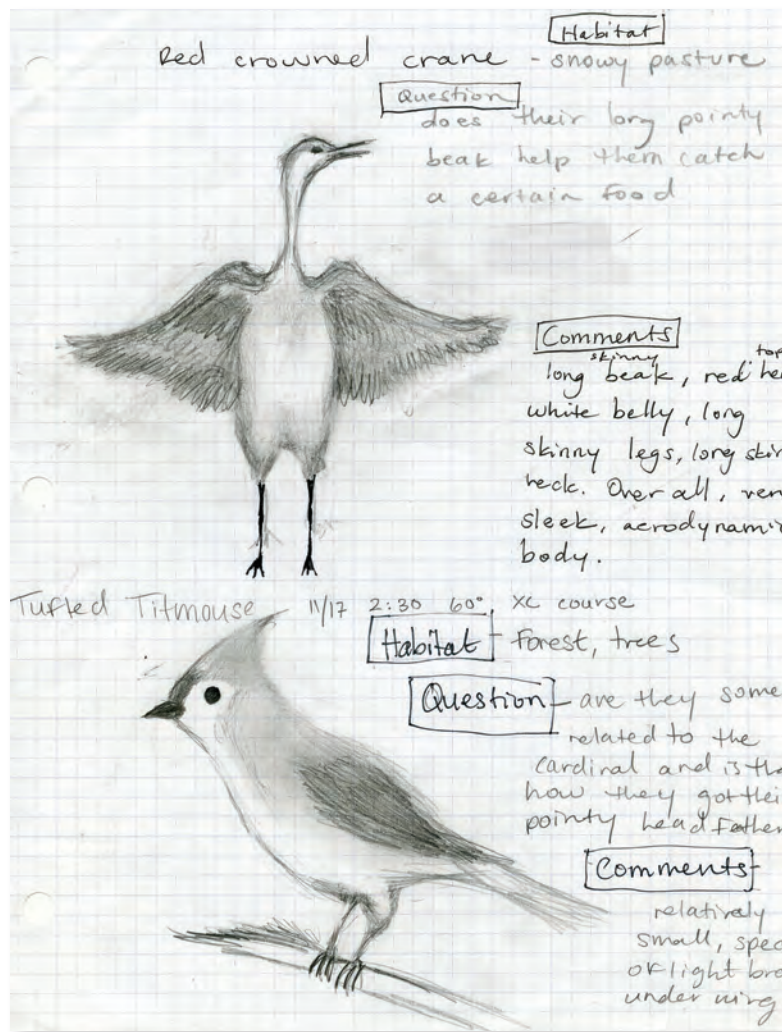 Habitat
Red crowned crane - snowy pasture
Question
does their long pointy
beak help them catch
a certain food
Comments
skinny top
long beak, red
white belly, long
skinny legs, long
neck. Over all,
sleek,
body.
Tufted Titmouse 11/17 2:30 60° XC course
Habitat - Forest, trees
Question - are they some
related to the
cardinal and is
how they got
pointy head
Comments -
relatively
small,
of light
under wing